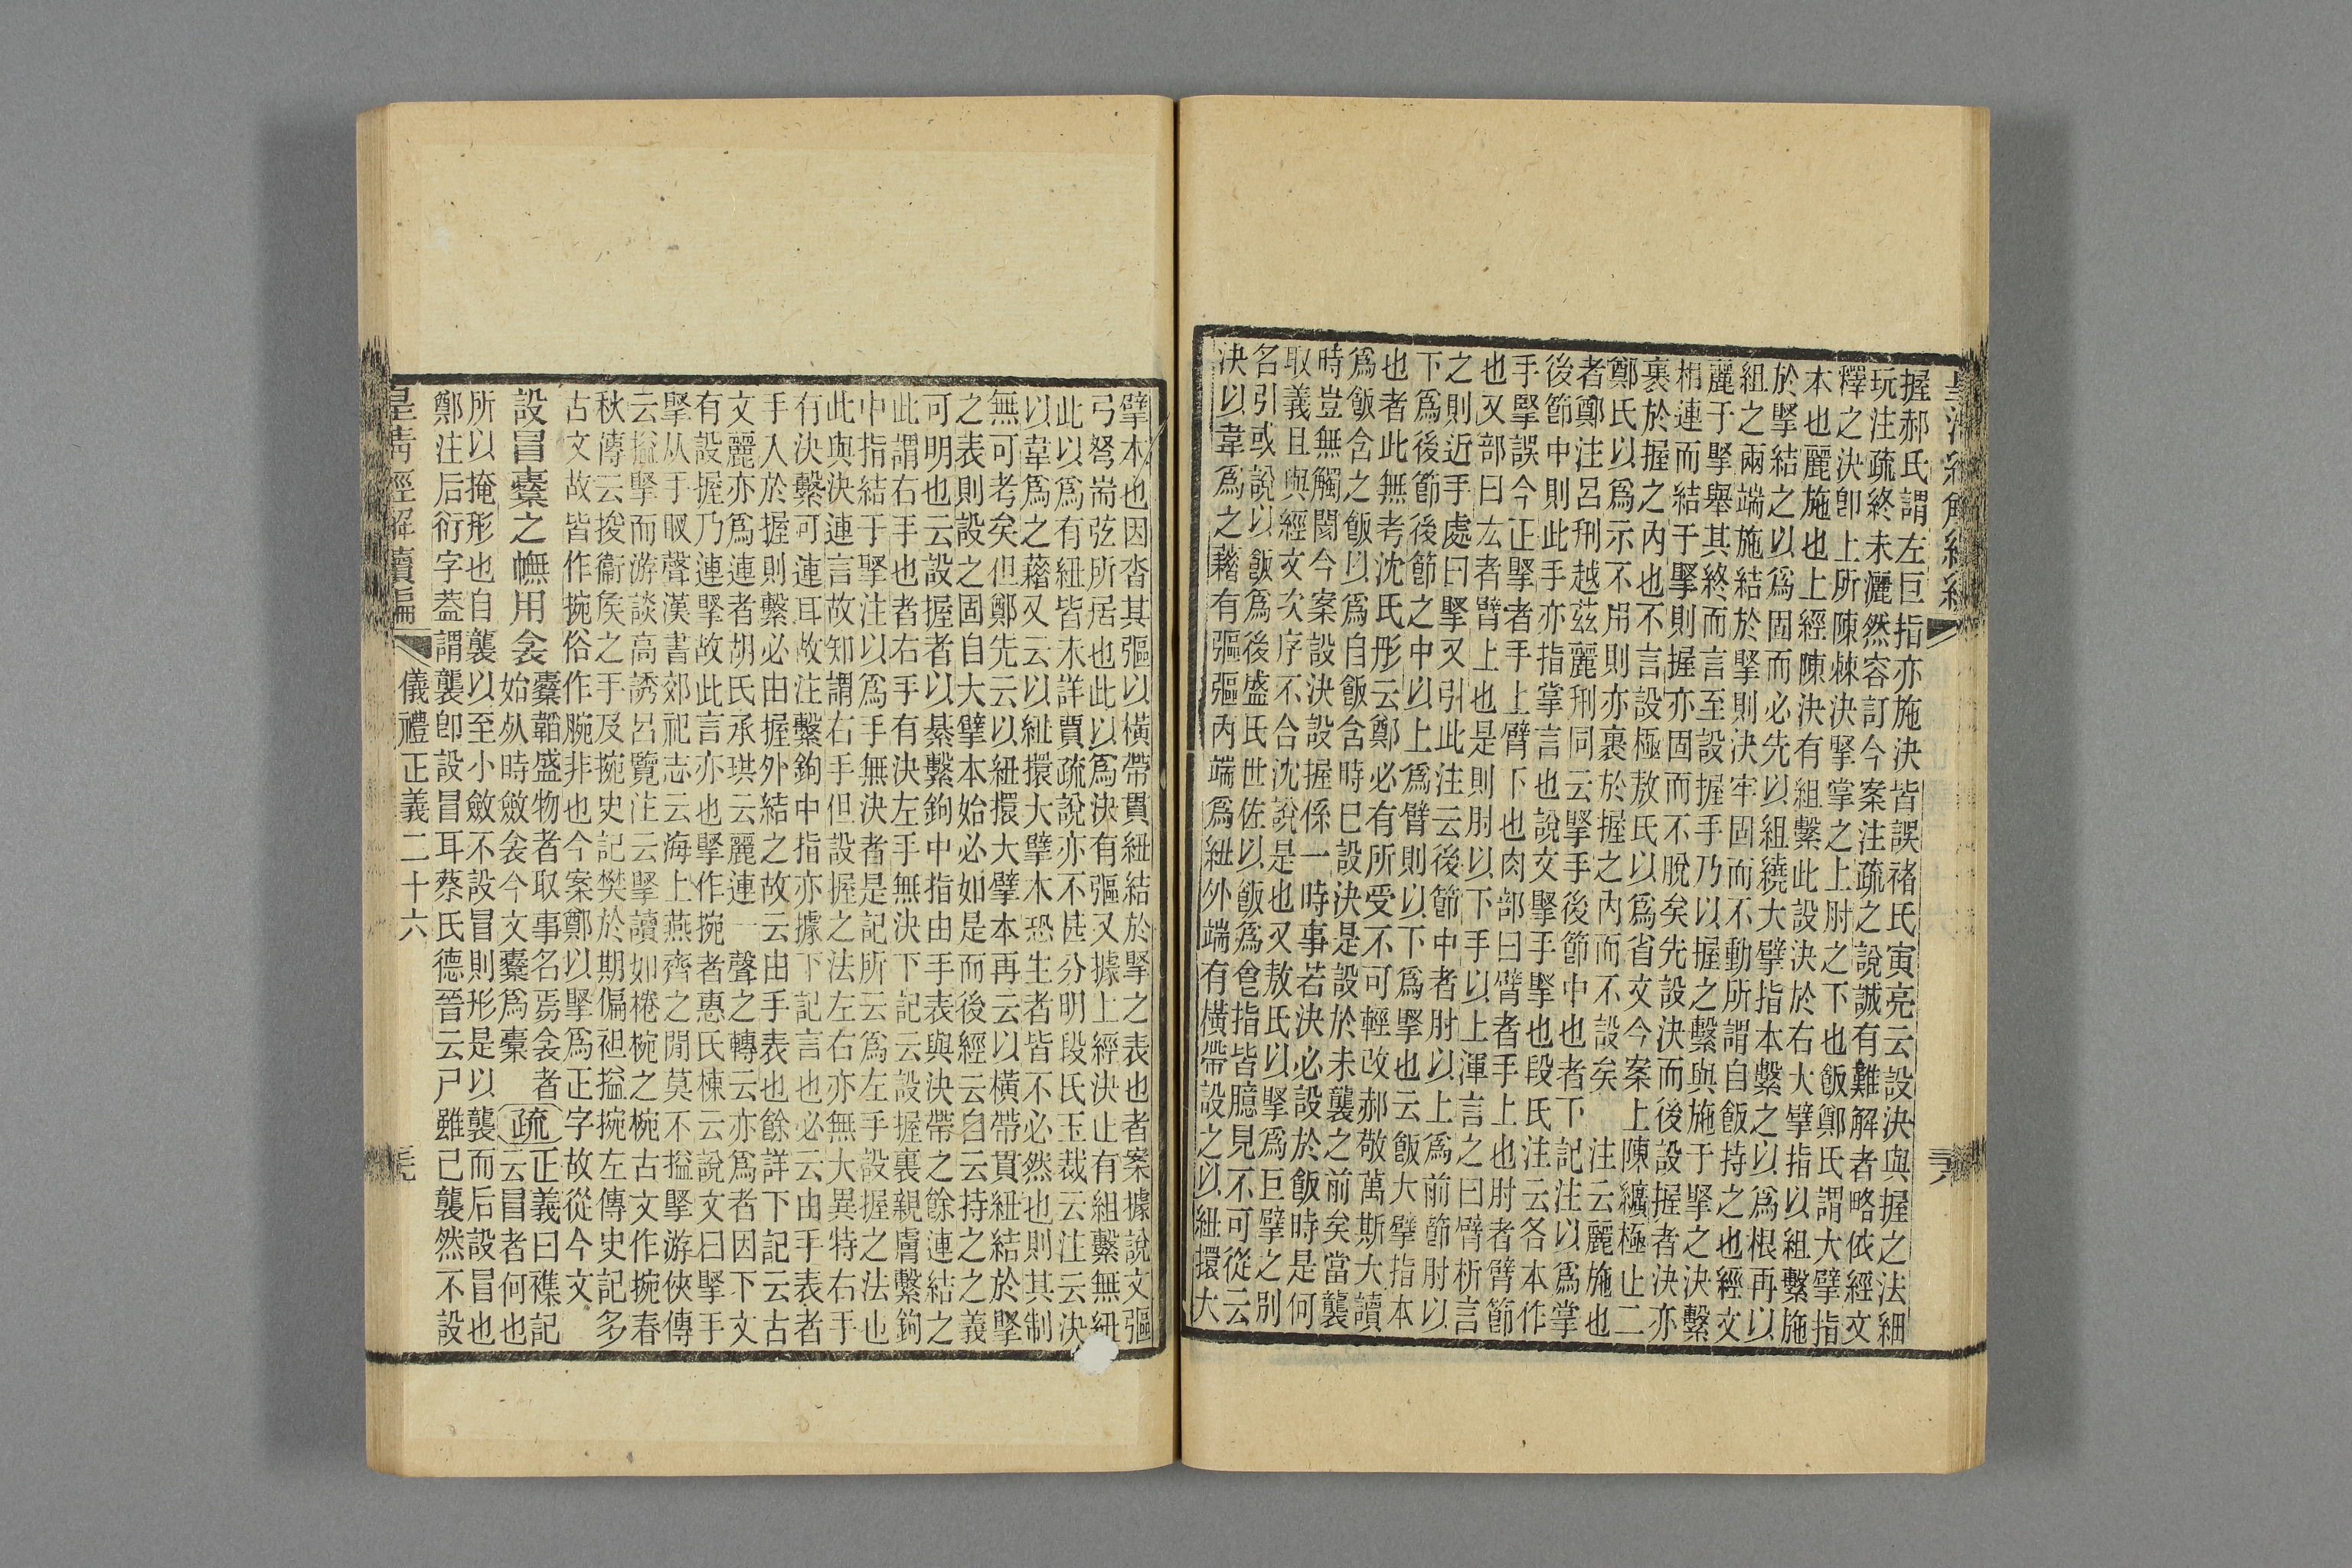 握郝氏謂左巨指亦施決皆誤褚氏寅亮云設決與握之法細
玩注疏終未灑然容訂今案注疏之說誠有難解者略依經文
釋之決卽上所陳棘決掔掌之上肘之下也飯鄭氏謂大擘指
本也麗施也上經陳決有組繫此設決於右大擘指以組繫施
於掔結之以爲固而必先以組繞大擘指本繫之以爲根再以
組之兩端施結於掔則決牢固而不動所謂自飯持之也經文
麗于掔舉其終而言至設握手乃以握之繫與施于掔之決繫
相連而結于掔則握亦固而不脫矣先設決而後設握者決亦
裹於握之內也不言設極敖氏以爲省文今案上陳纊極止二
鄭氏以爲示不用則亦裹於握之內而不設矣　注云麗施也
者鄭注呂刑越茲麗刑同云掔手後節中也者下記注以爲掌
後節中則此手亦指掌言也說文掔手掔也段氏注云各本作
手掔誤今正掔者手上臂下也肉部曰臂者手上也肘者臂節
也又部曰厷者臂上也是則肘以下手以上渾言之曰臂析言
之則近手處曰掔又引此注云後節中者肘以上爲前節肘以
下爲後節後節之中以上爲臂則以下爲掔也云飯大擘指本
也者此無考沈氏彤云鄭必有所受不可輕改郝敬萬斯大讀
爲飯含之飯以爲自飯含時已設決是設於未襲之前矣當襲
時豈無觸閡今案設決設握係一時事若決必設於飯時是何
取義且與經文次序不合沈說是也又敖氏以掔爲巨擘之別
名引或說以飯爲後盛氏世佐以飯爲皀指皆臆見不可從云
決以韋爲之藉有彄彄內端爲紐外端有橫帶設之以紐擐大
擘本也因沓其彄以橫帶貫紐結於掔之表也者案據說文彄
弓弩耑弦所居也此以爲決有彄又據上經決止有組繫無紐
此以爲有紐皆未詳賈疏說亦不甚分明段氏玉裁云注云決
以韋爲之藉又云以紐擐大擘本恐生者皆不必然也則其制
無可考矣但鄭先云以紐擐大擘本再云以橫帶貫紐結於掔
之表則設之固自大擘本始必如是而後經云自云持之之義
可明也云設握者以綦繫鉤中指由手表與決帶之餘連結之
此謂右手也者右手有決左手無決下記云設握裏親膚繫鉤
中指結于掔注以爲手無決者是記所云爲左手設握之法也
此與決連言故知謂右手但設握之法左右亦無大異特右手
有決繫可連耳故注繫鉤中指亦據下記言也必云由手表者
手入於握則繫必由握外結之故云由手表也餘詳下記云古
文麗亦爲連者胡氏承珙云麗連一聲之轉云亦爲者因下文
有設握乃連掔故此言亦也掔作捥者惠氏棟云說文曰掔手
掔从手臤聲漢書郊祀志云海上燕齊之閒莫不搤掔游俠傳
云搤掔而游談高誘呂覽注云掔讀如棬椀之椀古文作捥春
秋傳云捘衞矦之手及捥史記樊於期偏袒搤捥左傳史記多
古文故皆作捥俗作腕非也今案鄭以掔爲正字故從今文
設冒櫜之幠用衾
櫜韜盛物者取事名焉衾者
始𣦸時斂衾今文櫜爲橐
疏
正義曰襍記
云冒者何也
所以掩形也自襲以至小斂不設冒則形是以襲而后設冒也
鄭注后衍字葢謂襲卽設冒耳蔡氏德晉云尸雖已襲然不設
皇清經解續編
儀禮正義二十六